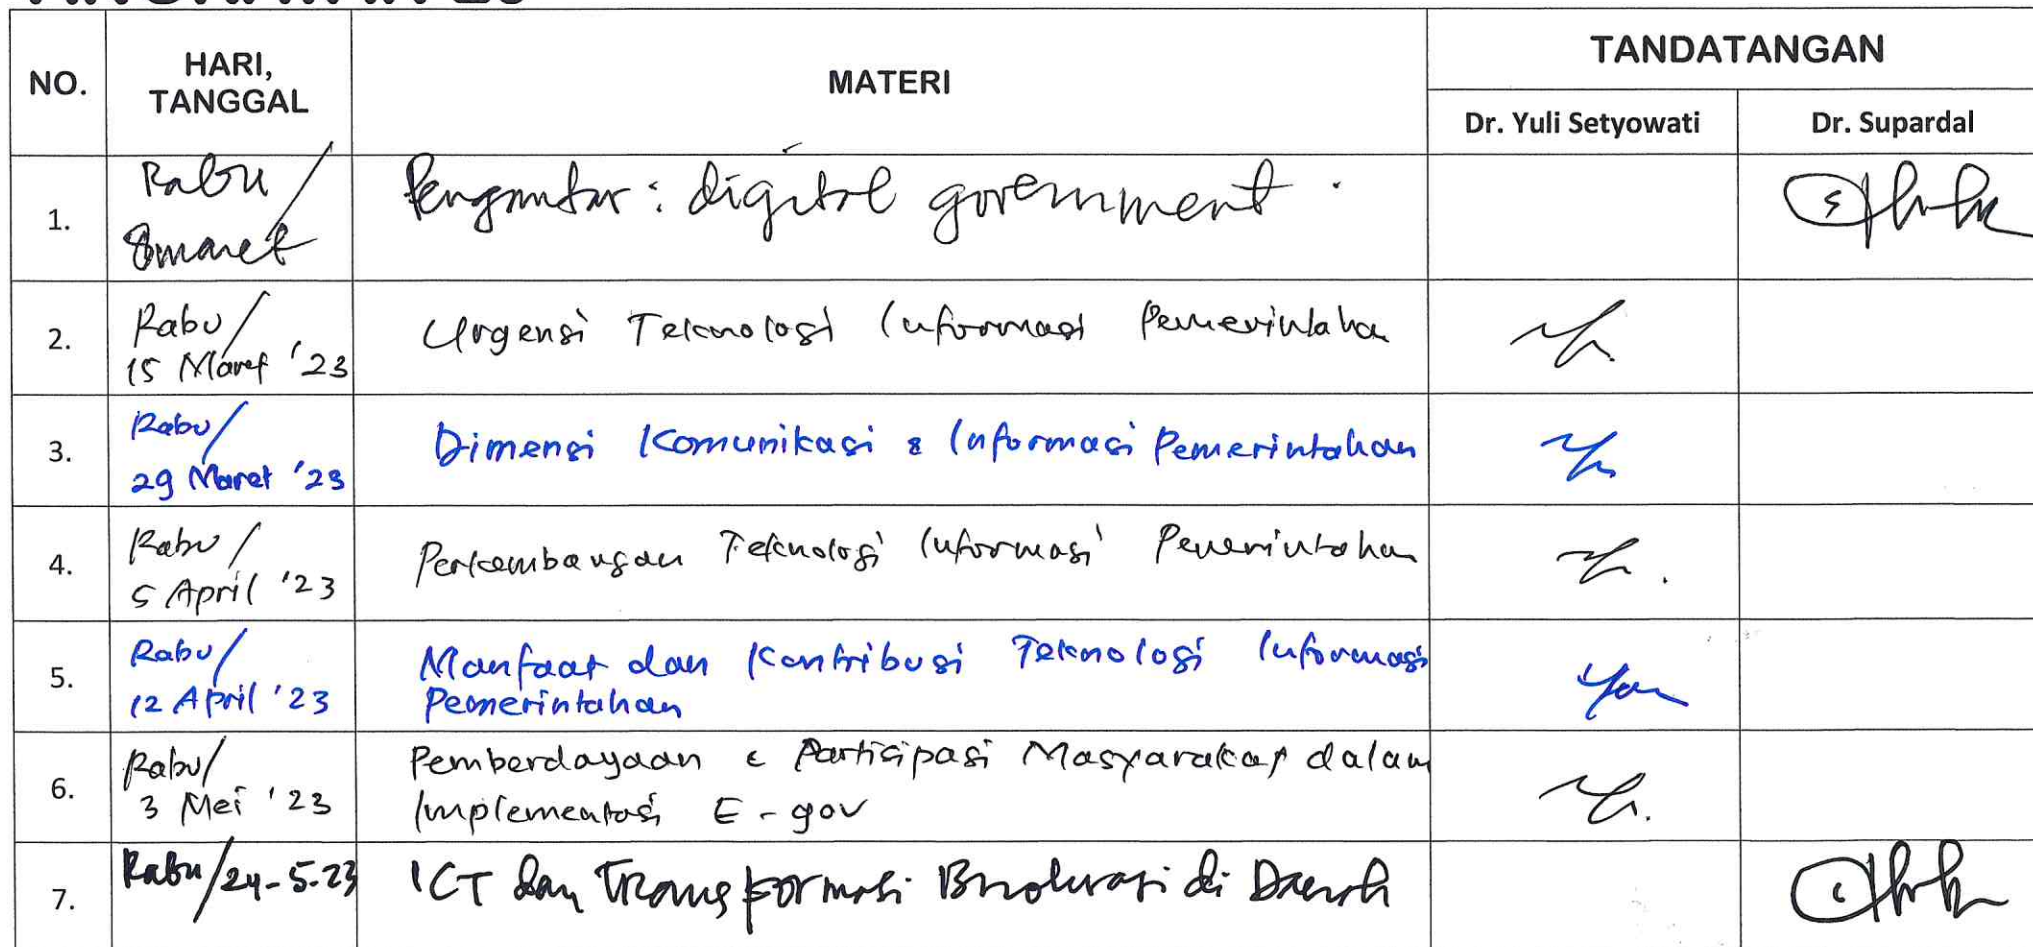 NO. HARI, TANGGAL MATERI TANDATANGAN
Dr. Yuli Setyowati Dr. Supardal
1. Rabu / 8 maret Pengantar : digital government
2. Rabu / 15 Maret '23 Urgensi Teknologi Informasi Pemerintaha
3. Rabu / 29 Maret '23 Dimensi Komunikasi & Informasi Pemerintahan
4. Rabu / 5 April '23 Perkembangan Teknologi Informasi Pemerintahan
5. Rabu / 12 April '23 Manfaat dan Kontribusi Teknologi Informasi
Pemerintahan
6. Rabu / 3 Mei '23 Pemberdayaan & Partisipasi Masyarakat dalam
Implementasi E-gov
7. Rabu / 24-5-23 ICT dan Transformasi Birokrasi di Daerah